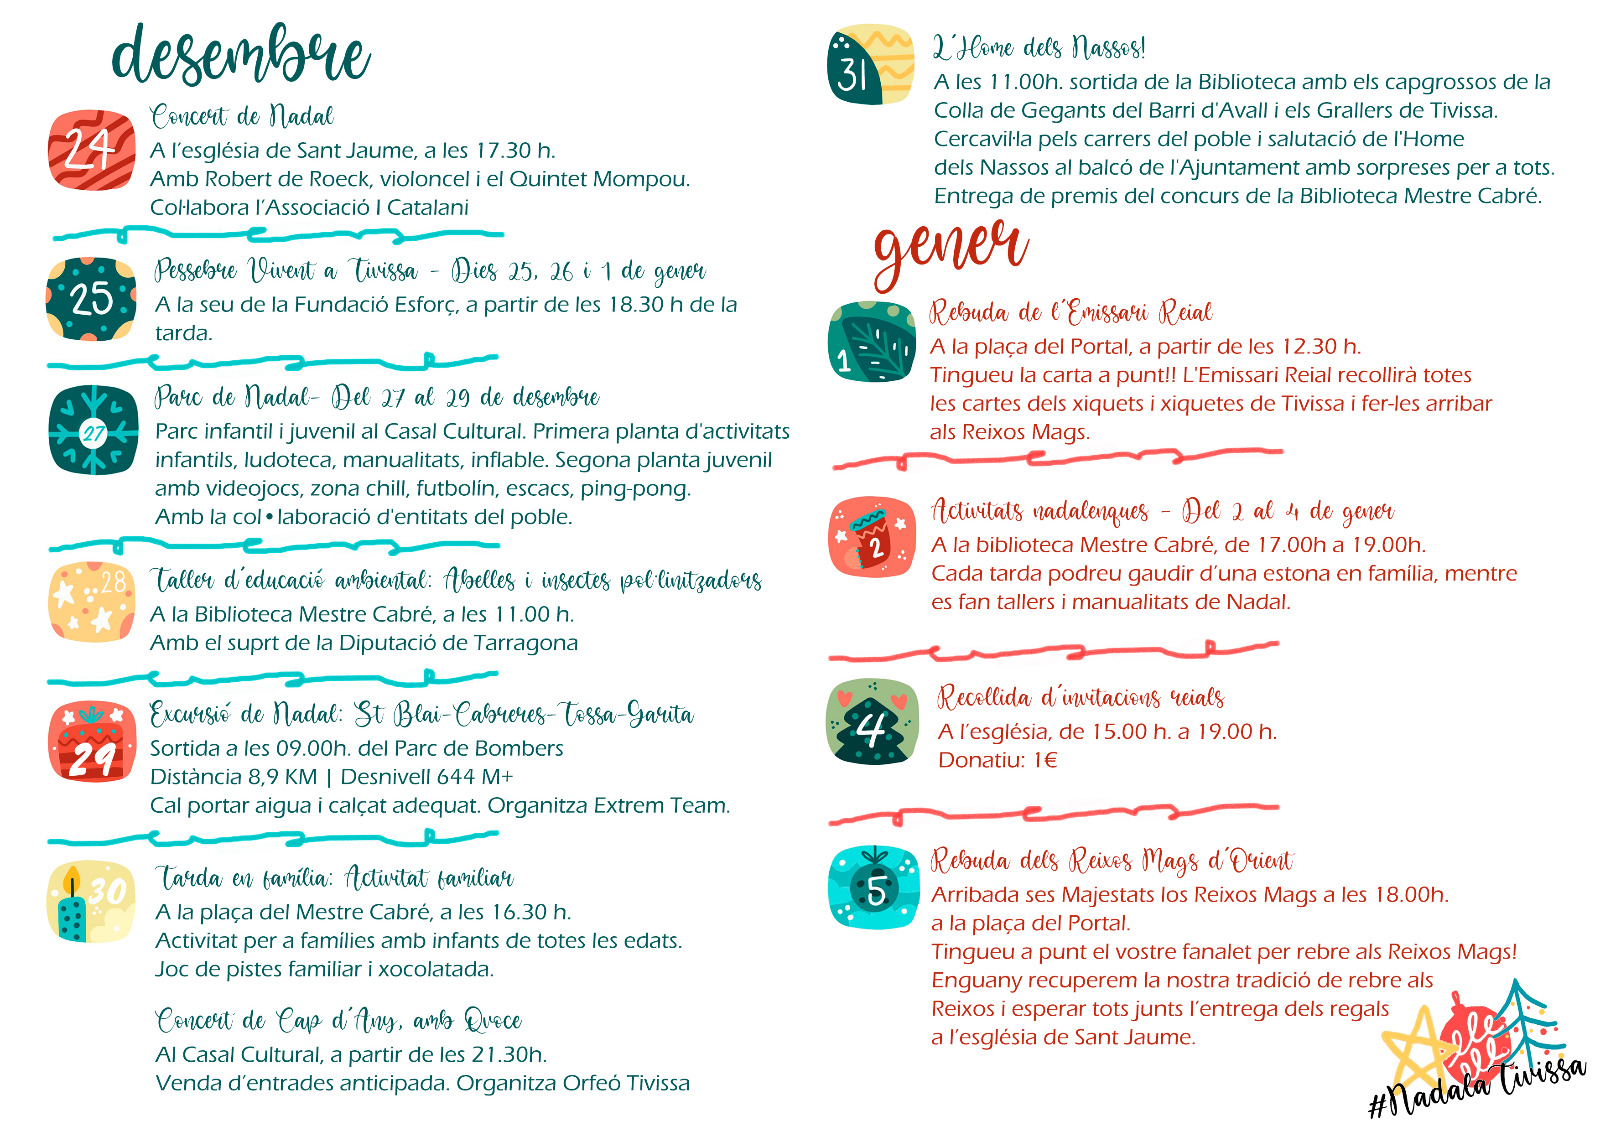 desembre
24
Concert de Nadal
A l’església de Sant Jaume, a les 17.30 h.
Amb Robert de Roeck, violoncel i el Quintet Mompou.
Col·labora l’Associació I Catalani
25
Pessebre Vivent a Tivissa - Dies 25, 26 i 1 de gener
A la seu de la Fundació Esforç, a partir de les 18.30 h de la
tarda.
27
Parc de Nadal- Del 27 al 29 de desembre
Parc infantil i juvenil al Casal Cultural. Primera planta d'activitats
infantils, ludoteca, manualitats, inflable. Segona planta juvenil
amb videojocs, zona chill, futbolín, escacs, ping-pong.
Amb la col•laboració d'entitats del poble.
28
Taller d'educació ambiental: Abelles i insectes pol·linitzadors
A la Biblioteca Mestre Cabré, a les 11.00 h.
Amb el suprt de la Diputació de Tarragona
29
Excursió de Nadal: St Blai-Cabreres-Tossa-Garita
Sortida a les 09.00h. del Parc de Bombers
Distància 8,9 KM | Desnivell 644 M+
Cal portar aigua i calçat adequat. Organitza Extrem Team.
30
Tarda en família: Activitat familiar
A la plaça del Mestre Cabré, a les 16.30 h.
Activitat per a famílies amb infants de totes les edats.
Joc de pistes familiar i xocolatada.
Concert de Cap d'Any, amb Qvoce
Al Casal Cultural, a partir de les 21.30h.
Venda d’entrades anticipada. Organitza Orfeó Tivissa
31
L'Home dels Nassos!
A les 11.00h. sortida de la Biblioteca amb els capgrossos de la
Colla de Gegants del Barri d'Avall i els Grallers de Tivissa.
Cercavil·la pels carrers del poble i salutació de l'Home
dels Nassos al balcó de l'Ajuntament amb sorpreses per a tots.
Entrega de premis del concurs de la Biblioteca Mestre Cabré.
gener
1
Rebuda de l'Emissari Reial
A la plaça del Portal, a partir de les 12.30 h.
Tingueu la carta a punt!! L'Emissari Reial recollirà totes
les cartes dels xiquets i xiquetes de Tivissa i fer-les arribar
als Reixos Mags.
2
Activitats nadalenques - Del 2 al 4 de gener
A la biblioteca Mestre Cabré, de 17.00h a 19.00h.
Cada tarda podreu gaudir d’una estona en família, mentre
es fan tallers i manualitats de Nadal.
4
Recollida d'invitacions reials
A l’església, de 15.00 h. a 19.00 h.
Donatiu: 1€
5
Rebuda dels Reixos Mags d'Orient
Arribada ses Majestats los Reixos Mags a les 18.00h.
a la plaça del Portal.
Tingueu a punt el vostre fanalet per rebre als Reixos Mags!
Enguany recuperem la nostra tradició de rebre als
Reixos i esperar tots junts l’entrega dels regals
a l’església de Sant Jaume.
#NadalaTivissa